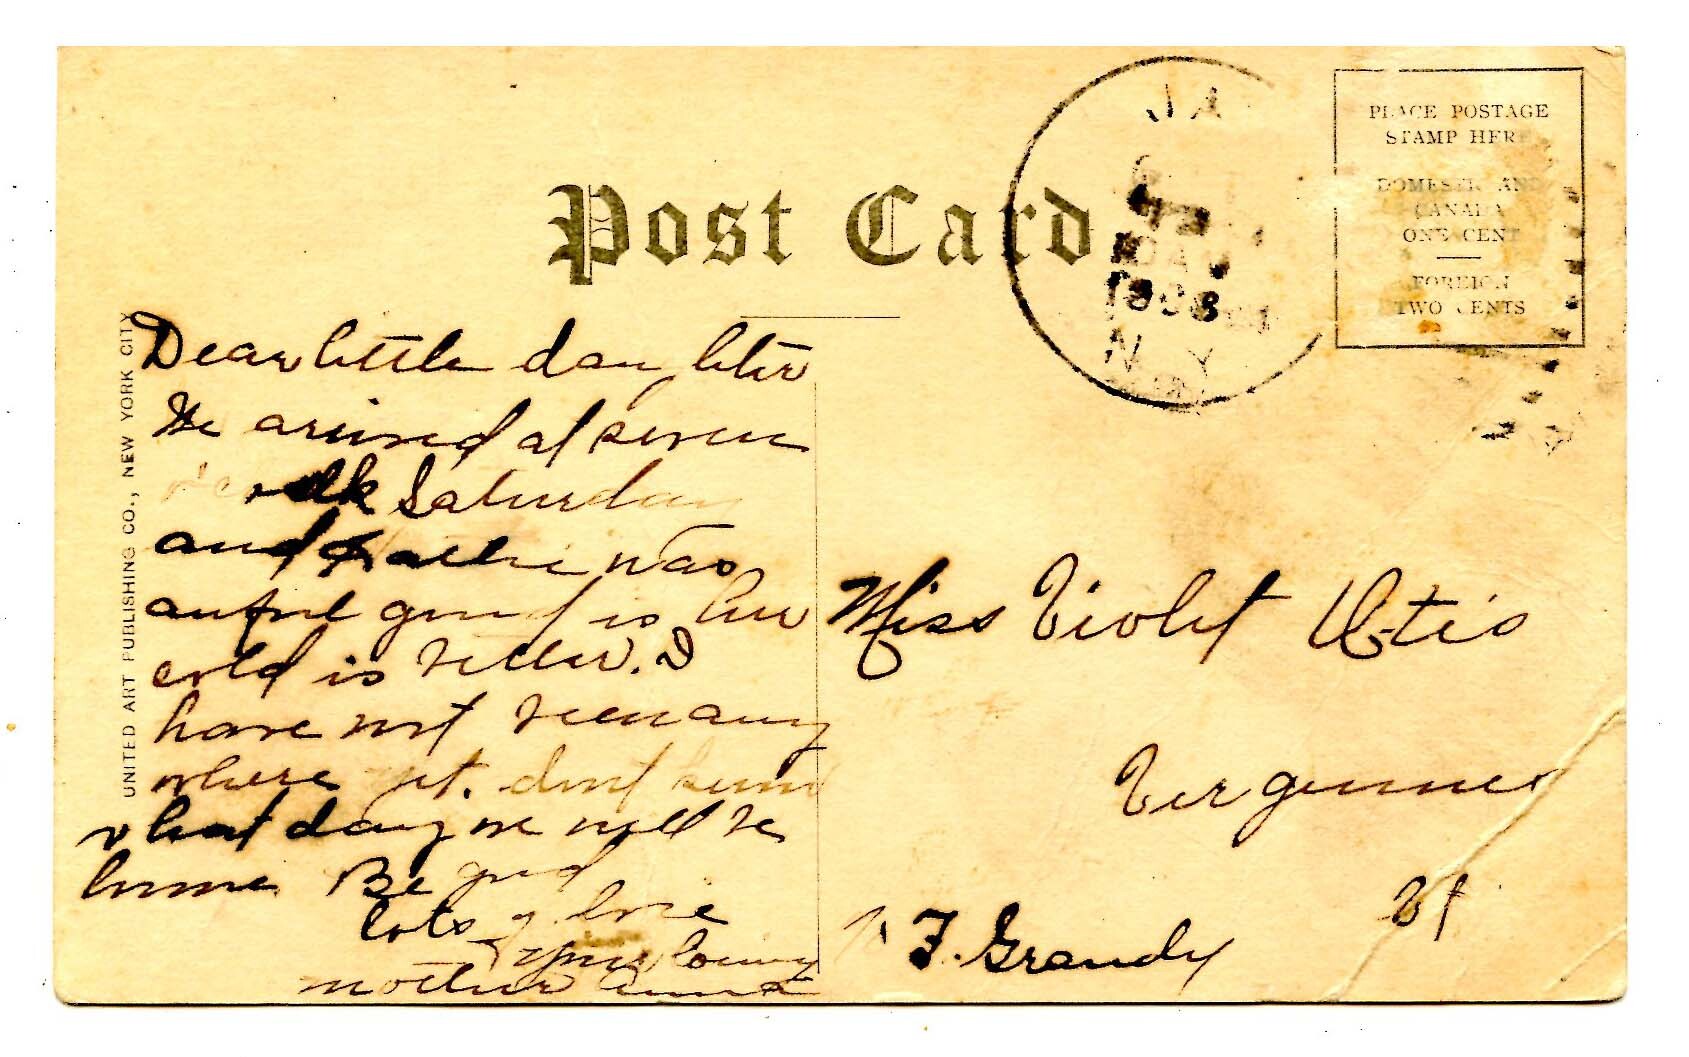 Post Card
PLACE POSTAGE
STAMP HERE
DOMESTIC AND
CANADA
ONE CENT
FOREIGN
TWO CENTS
JA
1908
N. Y.
UNITED ART PUBLISHING CO., NEW YORK CITY
Dear little daughter
We arrived at seven
Saturday
and was
awful good is her
cold is better. I
have not been any
where yet. dont know
what day we will be
home Be good
lots of love
your loving
mother
Miss Violet Otis
Vergennes
Vt
F. Grandy